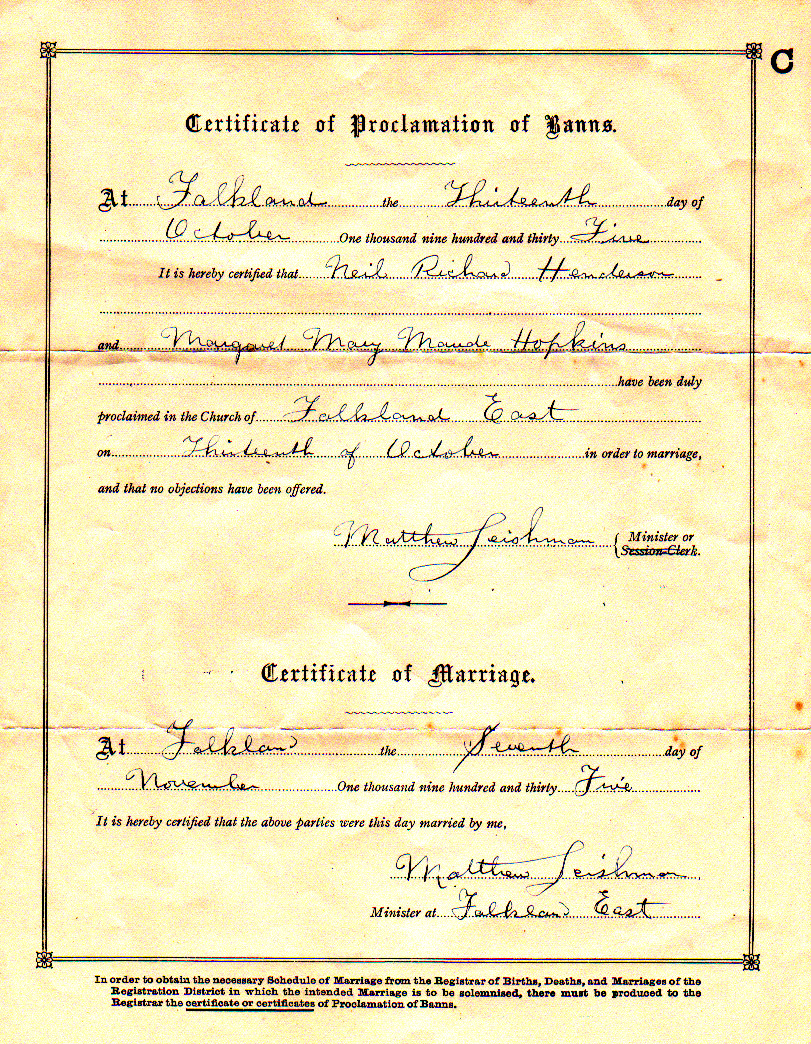 C
Certificate of Proclamation of Banns.
At Falkland the Thirteenth day of
October One thousand nine hundred and thirty Five
It is hereby certified that Neil Richard Henderson
and Margaret Mary Maude Hopkins
have been duly
proclaimed in the Church of Falkland East
on Thirteenth of October in order to marriage,
and that no objections have been offered.
Matthew Leishman { Minister or
Session-Clerk.
Certificate of Marriage.
At Falkland the Seventh day of
November One thousand nine hundred and thirty Five
It is hereby certified that the above parties were this day married by me,
Matthew Leishman
Minister at Falkland East
In order to obtain the necessary Schedule of Marriage from the Registrar of Births, Deaths, and Marriages of the
Registration District in which the intended Marriage is to be solemnised, there must be produced to the
Registrar the certificate or certificates of Proclamation of Banns.